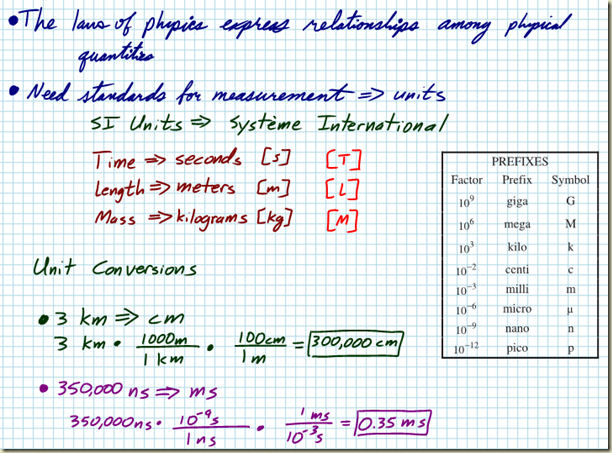 • The laws of physics express relationships among physical
quantities
• Need standards for measurement => units
SI Units => Système International
Time => seconds [s] [T]
Length => meters [m] [L]
Mass => kilograms [kg] [M]
PREFIXES
Factor Prefix Symbol
10⁹ giga G
10⁶ mega M
10³ kilo k
10⁻² centi c
10⁻³ milli m
10⁻⁶ micro μ
10⁻⁹ nano n
10⁻¹² pico p
Unit Conversions
• 3 km => cm
3 km • 1000m/1 km • 100cm/1m = 300,000 cm
• 350,000 ns => ms
350,000ns • 10⁻⁹s/1ns • 1 ms/10⁻³s = 0.35 ms